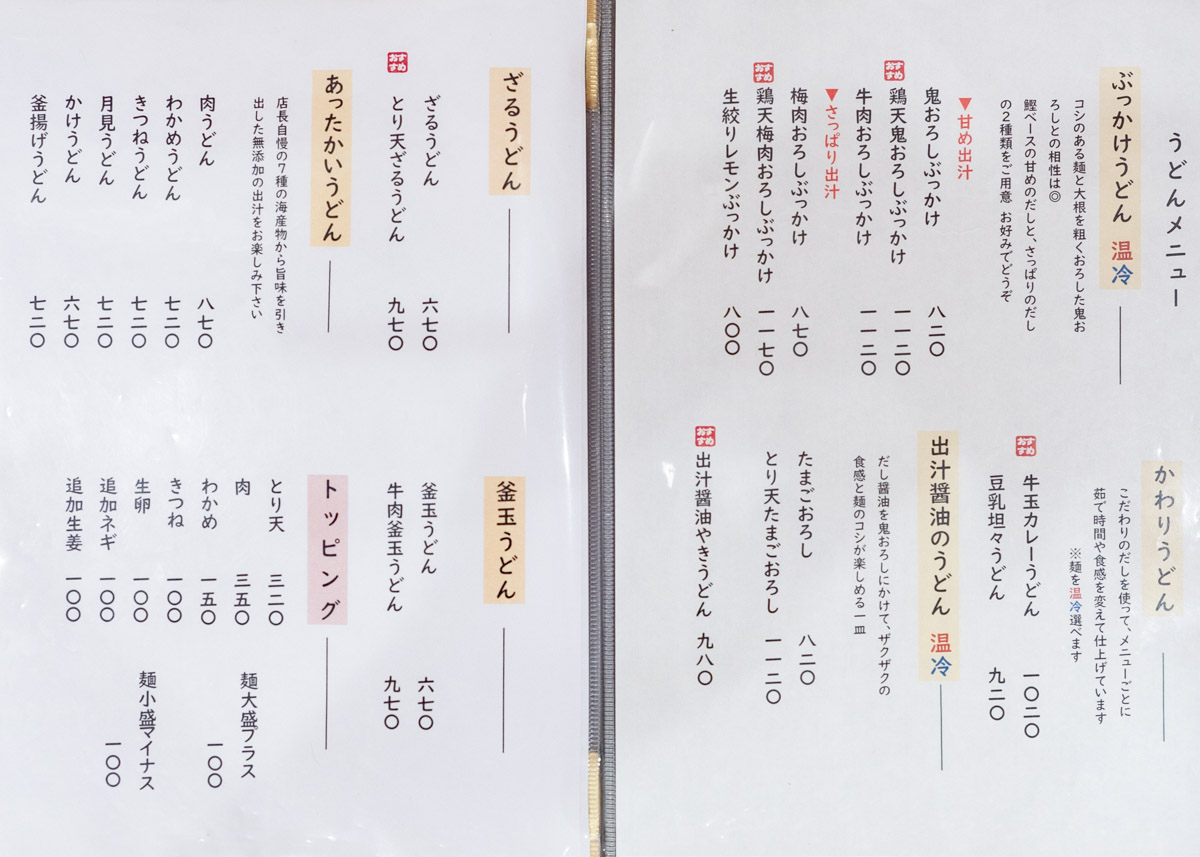 うどんメニュー
ぶっかけうどん 温冷
コシのある麺と大根を粗くおろした鬼お
ろしとの相性は◎
鰹ベースの甘めのだしと、さっぱりのだし
の2種類をご用意 お好みでどうぞ
▼甘め出汁
鬼おろしぶっかけ 八二〇
おすすめ
鶏天鬼おろしぶっかけ 一一二〇
牛肉おろしぶっかけ 一一二〇
▼さっぱり出汁
梅肉おろしぶっかけ 八七〇
おすすめ
鶏天梅肉おろしぶっかけ 一一七〇
生絞りレモンぶっかけ 八〇〇
かわりうどん
こだわりのだしを使って、メニューごとに
茹で時間や食感を変えて仕上げています
※麺を温冷選べます
おすすめ
牛玉カレーうどん 一〇二〇
豆乳坦々うどん 九二〇
出汁醤油のうどん 温冷
だし醤油を鬼おろしにかけて、ザクザクの
食感と麺のコシが楽しめる一皿
たまごおろし 八二〇
とり天たまごおろし 一一二〇
おすすめ
出汁醤油やきうどん 九八〇
ざるうどん
ざるうどん 六七〇
おすすめ
とり天ざるうどん 九七〇
あったかいうどん
店長自慢の7種の海産物から旨味を引き
出した無添加の出汁をお楽しみ下さい
肉うどん 八七〇
わかめうどん 七二〇
きつねうどん 七二〇
月見うどん 七二〇
かけうどん 六七〇
釜揚げうどん 七二〇
釜玉うどん
釜玉うどん 六七〇
牛肉釜玉うどん 九七〇
トッピング
とり天 三二〇
肉 三五〇
わかめ 一五〇
きつね 一〇〇
生卵 一〇〇
追加ネギ 一〇〇
追加生姜 一〇〇
麺大盛プラス
一〇〇
麺小盛マイナス
一〇〇